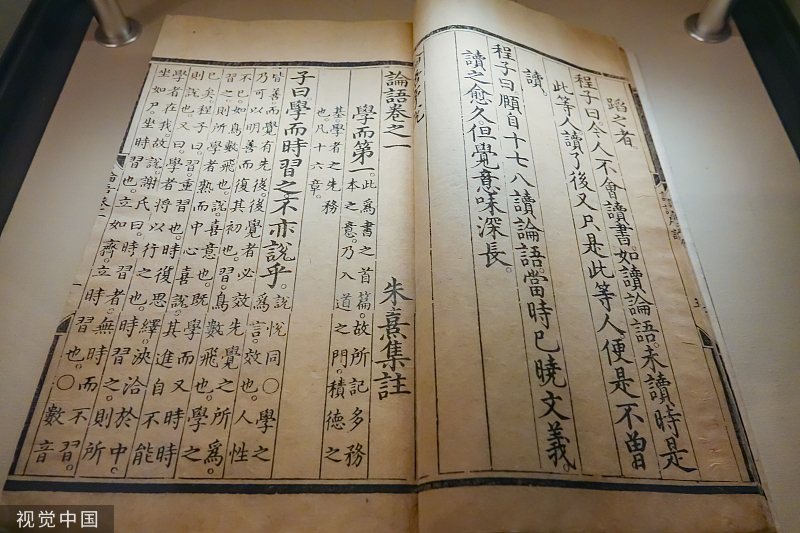 蹈之者
程子曰今人不會讀書。如讀論語。未讀時是
此等人讀了後又只是此等人便是不曾
讀。
程子曰頤自十七八讀論語。當時已曉文義。
讀之愈久但覺意味深長。
論語卷之一 朱熹集註
學而第一。此爲書之首篇。故所記多務
本之意。乃入道之門。積德之
基。學者之先務
也。凡十六章。
子曰。學而時習之不亦說乎。說悅同○學之
爲言。效也。人性
皆善。而覺有先後。後覺者必效先覺之所爲。
乃可以明善而復其初也。習。鳥數飛也。學之
不已。如鳥數飛也。說。喜意也。既學而又時時
習之。則所學者熟而中心喜說。其進自不能
已矣。程子曰。習。重習也。時復思繹。浹洽於中。
則說也。又曰。學者將以行之也。時習之。則所
學者在我。故說。謝氏曰。時習者。無時而不習。
坐如尸。坐時習也。立如齊。立時習也。○數音
视觉中国